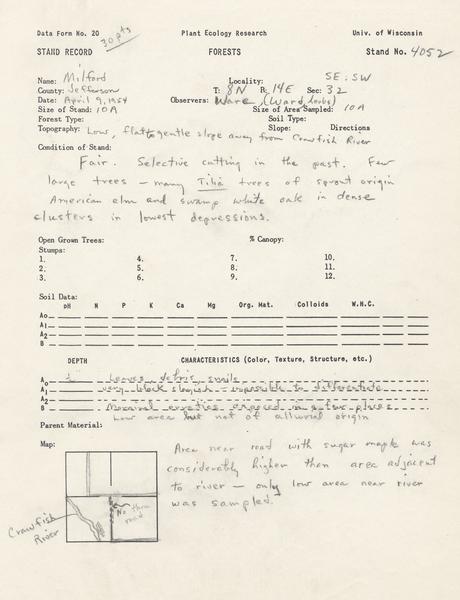 Data Form No. 20 30 pts Plant Ecology Research Univ. of Wisconsin
STAND RECORD FORESTS Stand No. 4052
Name: Milford Locality: SE: SW
County: Jefferson T: 8N R: 14E Sec: 32
Date: April 9, 1954 Observers: Ware, (Ward,
Size of Stand: 10A Size of Area Sampled: 10A
Forest Type: Soil Type:
Topography: Low, flat to gentle slope away from Crawfish River Slope: Directions
Condition of Stand:
Fair. Selective cutting in the past. Few
large trees – many Tilia trees of sprout origin
American elm and swamp white oak in dense
clusters in lowest depressions.
Open Grown Trees: % Canopy:
Stumps:
1. 4. 7. 10.
2. 5. 8. 11.
3. 6. 9. 12.
Soil Data:
pH N P K Ca Mg Org. Mat. Colloids W.H.C.
Ao
A1
A2
B
DEPTH CHARACTERISTICS (Color, Texture, Structure, etc.)
Ao Leaves, debris, snails
A1 very black – impossible to differentiate
A2
B Morainal erratics exposed in places
Low area but not of alluvial origin
Parent Material:
Map:
Area near road with sugar maple was
considerably higher than area adjacent
to river – only low area near river
was sampled.
No thru
road
Crawfish
River